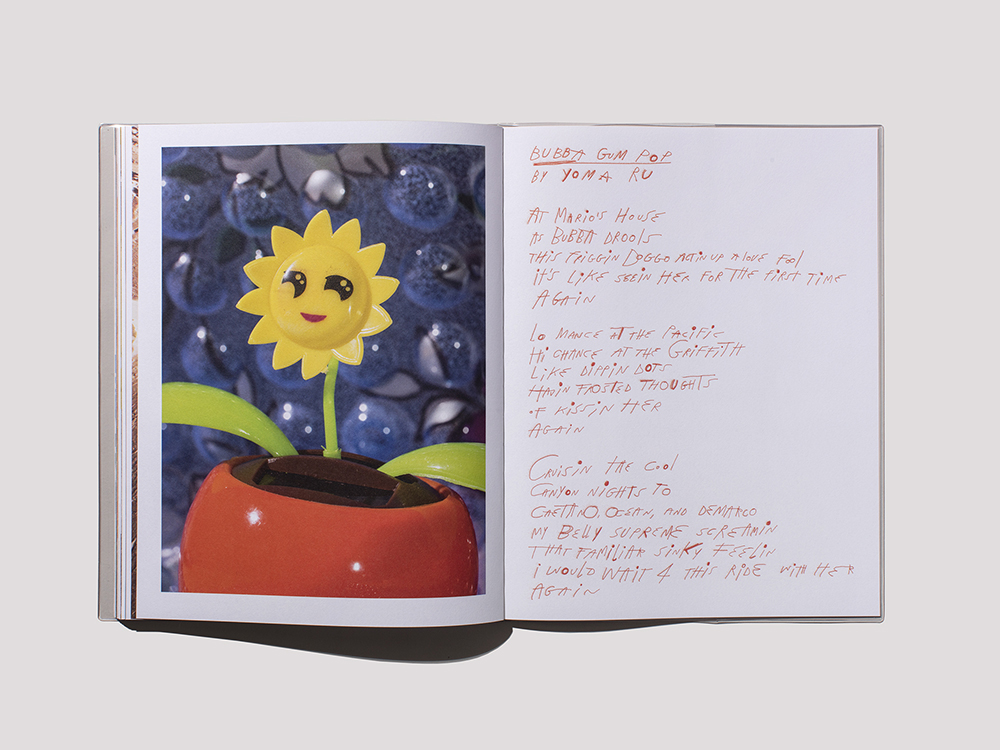 BUBBA GUM POP
BY YOMA RU
AT MARIO'S HOUSE
AS BUBBA DROOLS
THIS FRIGGIN DOGGO ACTIN UP A LOVE FOOL
IT'S LIKE SEEIN HER FOR THE FIRST TIME
AGAIN
LO MANCE AT THE PACIFIC
HI CHANCE AT THE GRIFFITH
LIKE DIPPIN DOTS
HAVIN FROSTED THOUGHTS
OF KISSIN HER
AGAIN
CRUISIN THE COOL
CANYON NIGHTS TO
CAETANO, OCEAN, AND DEMARCO
MY BELLY SUPREME SCREAMIN
THAT FAMILIAR SINKY FEELIN
I WOULD WAIT 4 THIS RIDE WITH HER
AGAIN